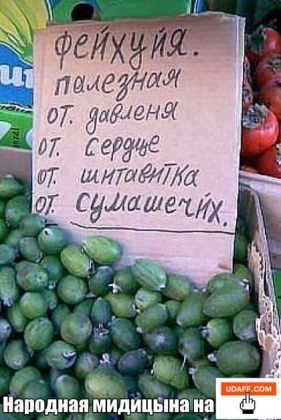 UDAFF.COM
фейхуйя.
палезная
от. давленя
от. сердце
от. шитавитка
от. сумашечйх.
Народная мидицына на
UDAFF.COM